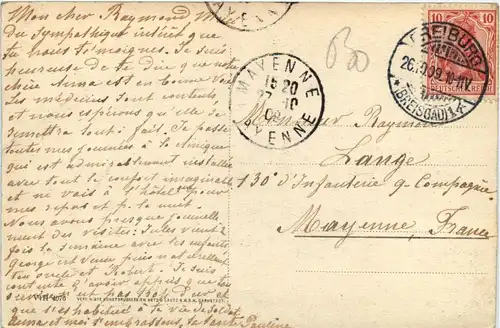 Mon cher Raymond, Merci
du sympathique intérêt que
tu nous témoignes. Je suis
heureuse de te dire que notre
chère Anna est en bonne voie.
Les médecins sont contents,
et nous espérons qu'elle se
remettra tout-à-fait. Je passe
toutes mes journées à la clinique
qui est admirablement installée
avec tout le confort imaginable
et ne vais à l'hôtel pour
mes repas et p. la nuit.
Nous avons presque journelle
ment des visites: Jules vient
fois la semaine avec ses enfants
George est venu puis
ton oncle et Robert. Je suis
contente d'avoir appris que
service n'est pas trop dur et
que tu t'es habitué à ta vie de soldat
Anna et moi t'embrassons, ta tante Pauline
Monsieur Raymond
Lange
130e d'Infanterie 9e Compagnie
Mayenne, France
MAYENNE
15 20
27 -10
09
MAYENNE
AYENNE
FREIBURG
26.10.09.10-11V
* (BREISGAU) 1
10
10
DEUTSCHES REICH